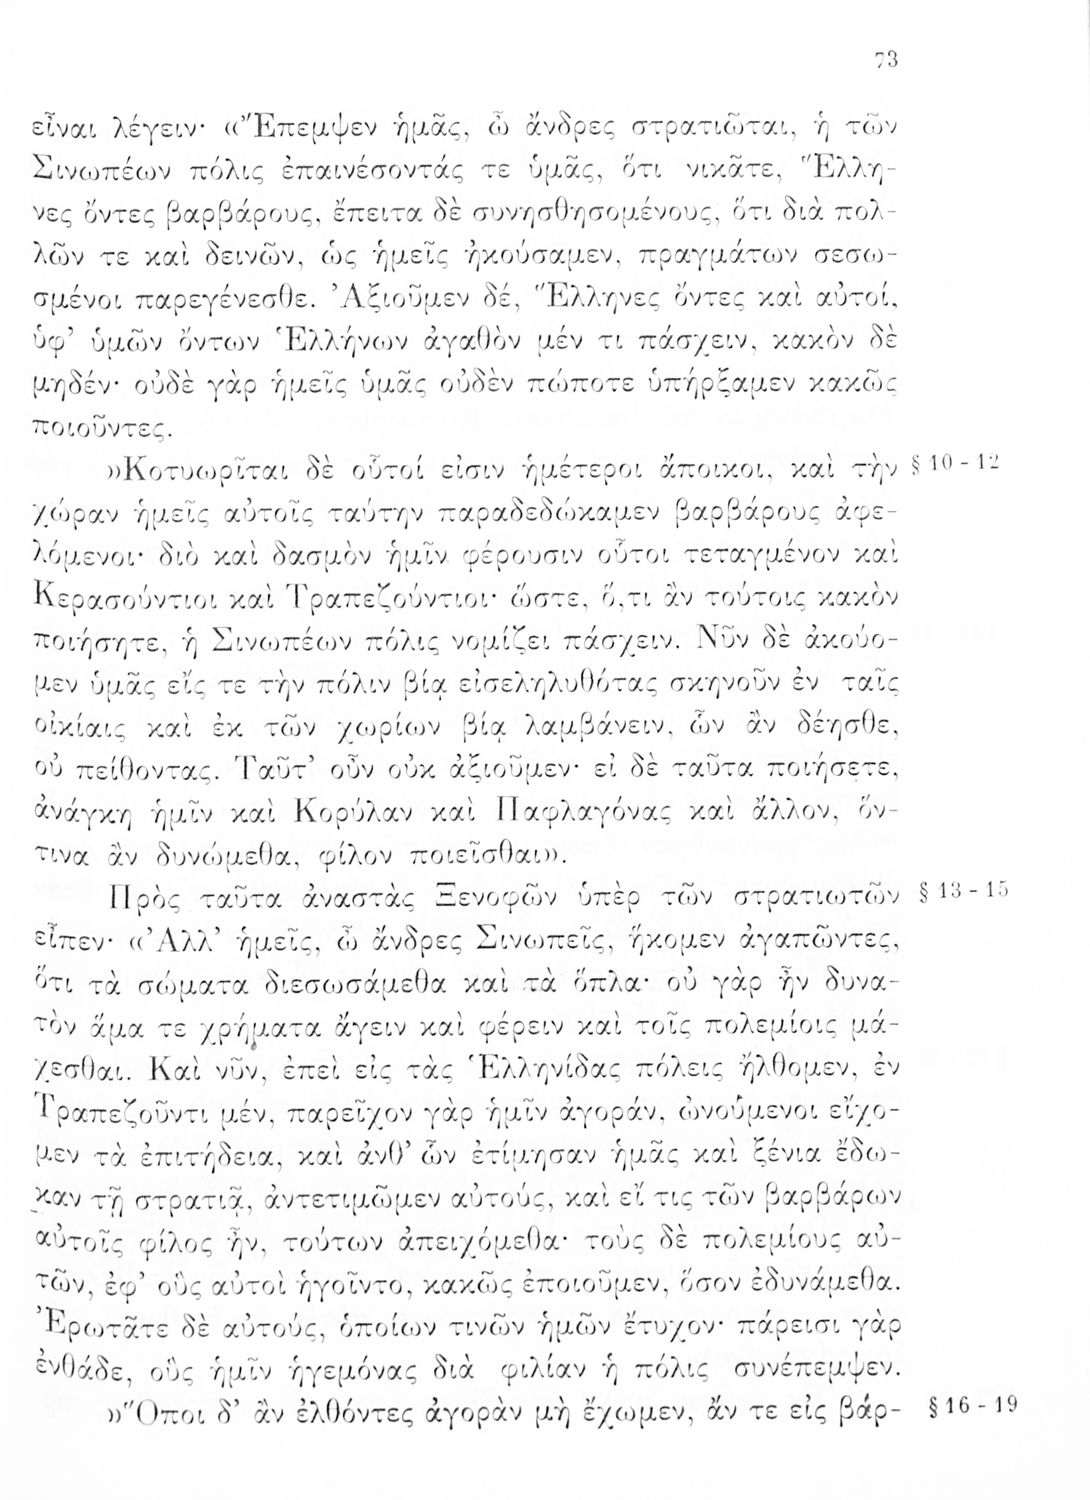 73
εἶναι λέγειν· «Ἔπεμψεν ἡμᾶς, ὦ ἄνδρες στρατιῶται, ἡ τῶν
Σινωπέων πόλις ἐπαινέσοντάς τε ὑμᾶς, ὅτι νικᾶτε, Ἕλλη-
νες ὄντες βαρβάρους, ἔπειτα δὲ συνησθησομένους, ὅτι διὰ πολ-
λῶν τε καὶ δεινῶν, ὡς ἡμεῖς ἠκούσαμεν, πραγμάτων σεσω-
σμένοι παρεγένεσθε. Ἀξιοῦμεν δέ, Ἕλληνες ὄντες καὶ αὐτοί,
ὑφ’ ὑμῶν ὄντων Ἑλλήνων ἀγαθὸν μέν τι πάσχειν, κακὸν δὲ
μηδέν· οὐδὲ γὰρ ἡμεῖς ὑμᾶς οὐδὲν πώποτε ὑπήρξαμεν κακῶς
ποιοῦντες.
»Κοτυωρῖται δὲ οὗτοί εἰσιν ἡμέτεροι ἄποικοι, καὶ τὴν § 10 - 12
χώραν ἡμεῖς αὐτοῖς ταύτην παραδεδώκαμεν βαρβάρους ἀφε-
λόμενοι· διὸ καὶ δασμὸν ἡμῖν φέρουσιν οὗτοι τεταγμένον καὶ
Κερασούντιοι καὶ Τραπεζούντιοι· ὥστε, ὅ,τι ἂν τούτοις κακὸν
ποιήσητε, ἡ Σινωπέων πόλις νομίζει πάσχειν. Νῦν δὲ ἀκούο-
μεν ὑμᾶς εἴς τε τὴν πόλιν βίᾳ εἰσεληλυθότας σκηνοῦν ἐν ταῖς
οἰκίαις καὶ ἐκ τῶν χωρίων βίᾳ λαμβάνειν, ὧν ἂν δέησθε,
οὐ πείθοντας. Ταῦτ’ οὖν οὐκ ἀξιοῦμεν· εἰ δὲ ταῦτα ποιήσετε,
ἀνάγκη ἡμῖν καὶ Κορύλαν καὶ Παφλαγόνας καὶ ἄλλον, ὅν-
τινα ἂν δυνώμεθα, φίλον ποιεῖσθαι».
Πρὸς ταῦτα ἀναστὰς Ξενοφῶν ὑπὲρ τῶν στρατιωτῶν § 13 - 15
εἶπεν· «Ἀλλ’ ἡμεῖς, ὦ ἄνδρες Σινωπεῖς, ἥκομεν ἀγαπῶντες,
ὅτι τὰ σώματα διεσωσάμεθα καὶ τὰ ὅπλα· οὐ γὰρ ἦν δυνα-
τὸν ἅμα τε χρήματα ἄγειν καὶ φέρειν καὶ τοῖς πολεμίοις μά-
χεσθαι. Καὶ νῦν, ἐπεὶ εἰς τὰς Ἑλληνίδας πόλεις ἤλθομεν, ἐν
Τραπεζοῦντι μέν, παρεῖχον γὰρ ἡμῖν ἀγοράν, ὠνούμενοι εἴχο-
μεν τὰ ἐπιτήδεια, καὶ ἀνθ’ ὧν ἐτίμησαν ἡμᾶς καὶ ξένια ἔδω-
καν τῇ στρατιᾷ, ἀντετιμῶμεν αὐτούς, καὶ εἴ τις τῶν βαρβάρων
αὐτοῖς φίλος ἦν, τούτων ἀπειχόμεθα· τοὺς δὲ πολεμίους αὐ-
τῶν, ἐφ’ οὓς αὐτοὶ ἡγοῖντο, κακῶς ἐποιοῦμεν, ὅσον ἐδυνάμεθα.
Ἐρωτᾶτε δὲ αὐτούς, ὁποίων τινῶν ἡμῶν ἔτυχον· πάρεισι γὰρ
ἐνθάδε, οὓς ἡμῖν ἡγεμόνας διὰ φιλίαν ἡ πόλις συνέπεμψεν.
»Ὅποι δ’ ἂν ἐλθόντες ἀγορὰν μὴ ἔχωμεν, ἄν τε εἰς βάρ- § 16 - 19